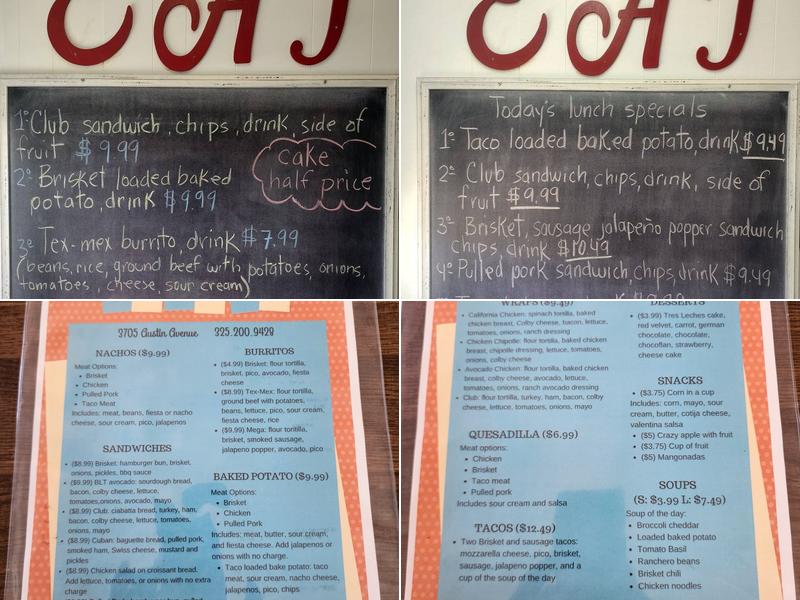 EAT
1º Club sandwich, chips, drink, side of
fruit $9.99
cake
half price
2º Brisket loaded baked
potato, drink $9.99
3º Tex-mex burrito, drink $7.99
(beans, rice, ground beef with potatoes, onions,
tomatoes, cheese, sour cream)
EAT
Today's lunch specials
1º Taco loaded baked potato, drink $9.49
2º Club sandwich, chips, drink, side of
fruit $9.99
3º Brisket, sausage jalapeño popper sandwich
chips, drink $10.49
4º Pulled pork sandwich, chips, drink $9.49
3705 Austin Avenue 325.200.9428
NACHOS ($9.99)
Meat Options:
• Brisket
• Chicken
• Pulled Pork
• Taco Meat
Includes: meat, beans, fiesta or nacho
cheese, sour cream, pico, jalapenos
SANDWICHES
• ($8.99) Brisket: hamburger bun, brisket,
onions, pickles, bbq sauce
• ($9.99) BLT avocado: sourdough bread,
bacon, colby cheese, lettuce,
tomatoes, onions, avocado, mayo
• ($8.99) Club: ciabatta bread, turkey, ham,
bacon, colby cheese, lettuce, tomatoes,
onions, mayo
• ($8.99) Cuban: baguette bread, pulled pork,
smoked ham, Swiss cheese, mustard and
pickles
• ($8.99) Chicken salad on croissant bread.
Add lettuce, tomatoes, or onions with no extra
charge
BURRITOS
• ($4.99) Brisket: flour tortilla,
brisket, pico, avocado, fiesta
cheese
• ($8.99) Tex-Mex: flour tortilla,
ground beef with potatoes,
beans, lettuce, pico, sour cream,
fiesta cheese, rice
• ($9.99) Mega: flour tortilla,
brisket, smoked sausage,
jalapeno popper, avocado, pico
BAKED POTATO ($9.99)
Meat Options:
• Brisket
• Chicken
• Pulled Pork
Includes: meat, butter, sour cream,
and fiesta cheese. Add jalapenos or
onions with no charge.
• Taco loaded bake potato: taco
meat, sour cream, nacho cheese,
jalapenos, pico, chips
WRAPS ($9.49)
• California Chicken: spinach tortilla, baked
chicken breast, Colby cheese, bacon, lettuce,
tomatoes, onions, ranch dressing
• Chicken Chipotle: flour tortilla, baked chicken
breast, chipotle dressing, lettuce, tomatoes,
onions, colby cheese
• Avocado Chicken: flour tortilla, baked chicken
breast, colby cheese, avocado, lettuce,
tomatoes, onions, ranch avocado dressing
• Club: flour tortilla, turkey, ham, bacon, colby
cheese, lettuce, tomatoes, onions, mayo
QUESADILLA ($6.99)
Meat options:
• Chicken
• Brisket
• Taco meat
• Pulled pork
Includes sour cream and salsa
TACOS ($12.49)
• Two Brisket and sausage tacos:
mozzarella cheese, pico, brisket,
sausage, jalapeno popper, and a
cup of the soup of the day
DESSERTS
• ($3.99) Tres Leches cake,
red velvet, carrot, german
chocolate, chocolate,
chocoflan, strawberry,
cheese cake
SNACKS
• ($3.75) Corn in a cup
Includes: corn, mayo, sour
cream, butter, cotija cheese,
valentina salsa
• ($5) Crazy apple with fruit
• ($3.75) Cup of fruit
• ($5) Mangonadas
SOUPS
(S: $3.99 L: $7.49)
Soup of the day:
• Broccoli cheddar
• Loaded baked potato
• Tomato Basil
• Ranchero beans
• Brisket chili
• Chicken noodles